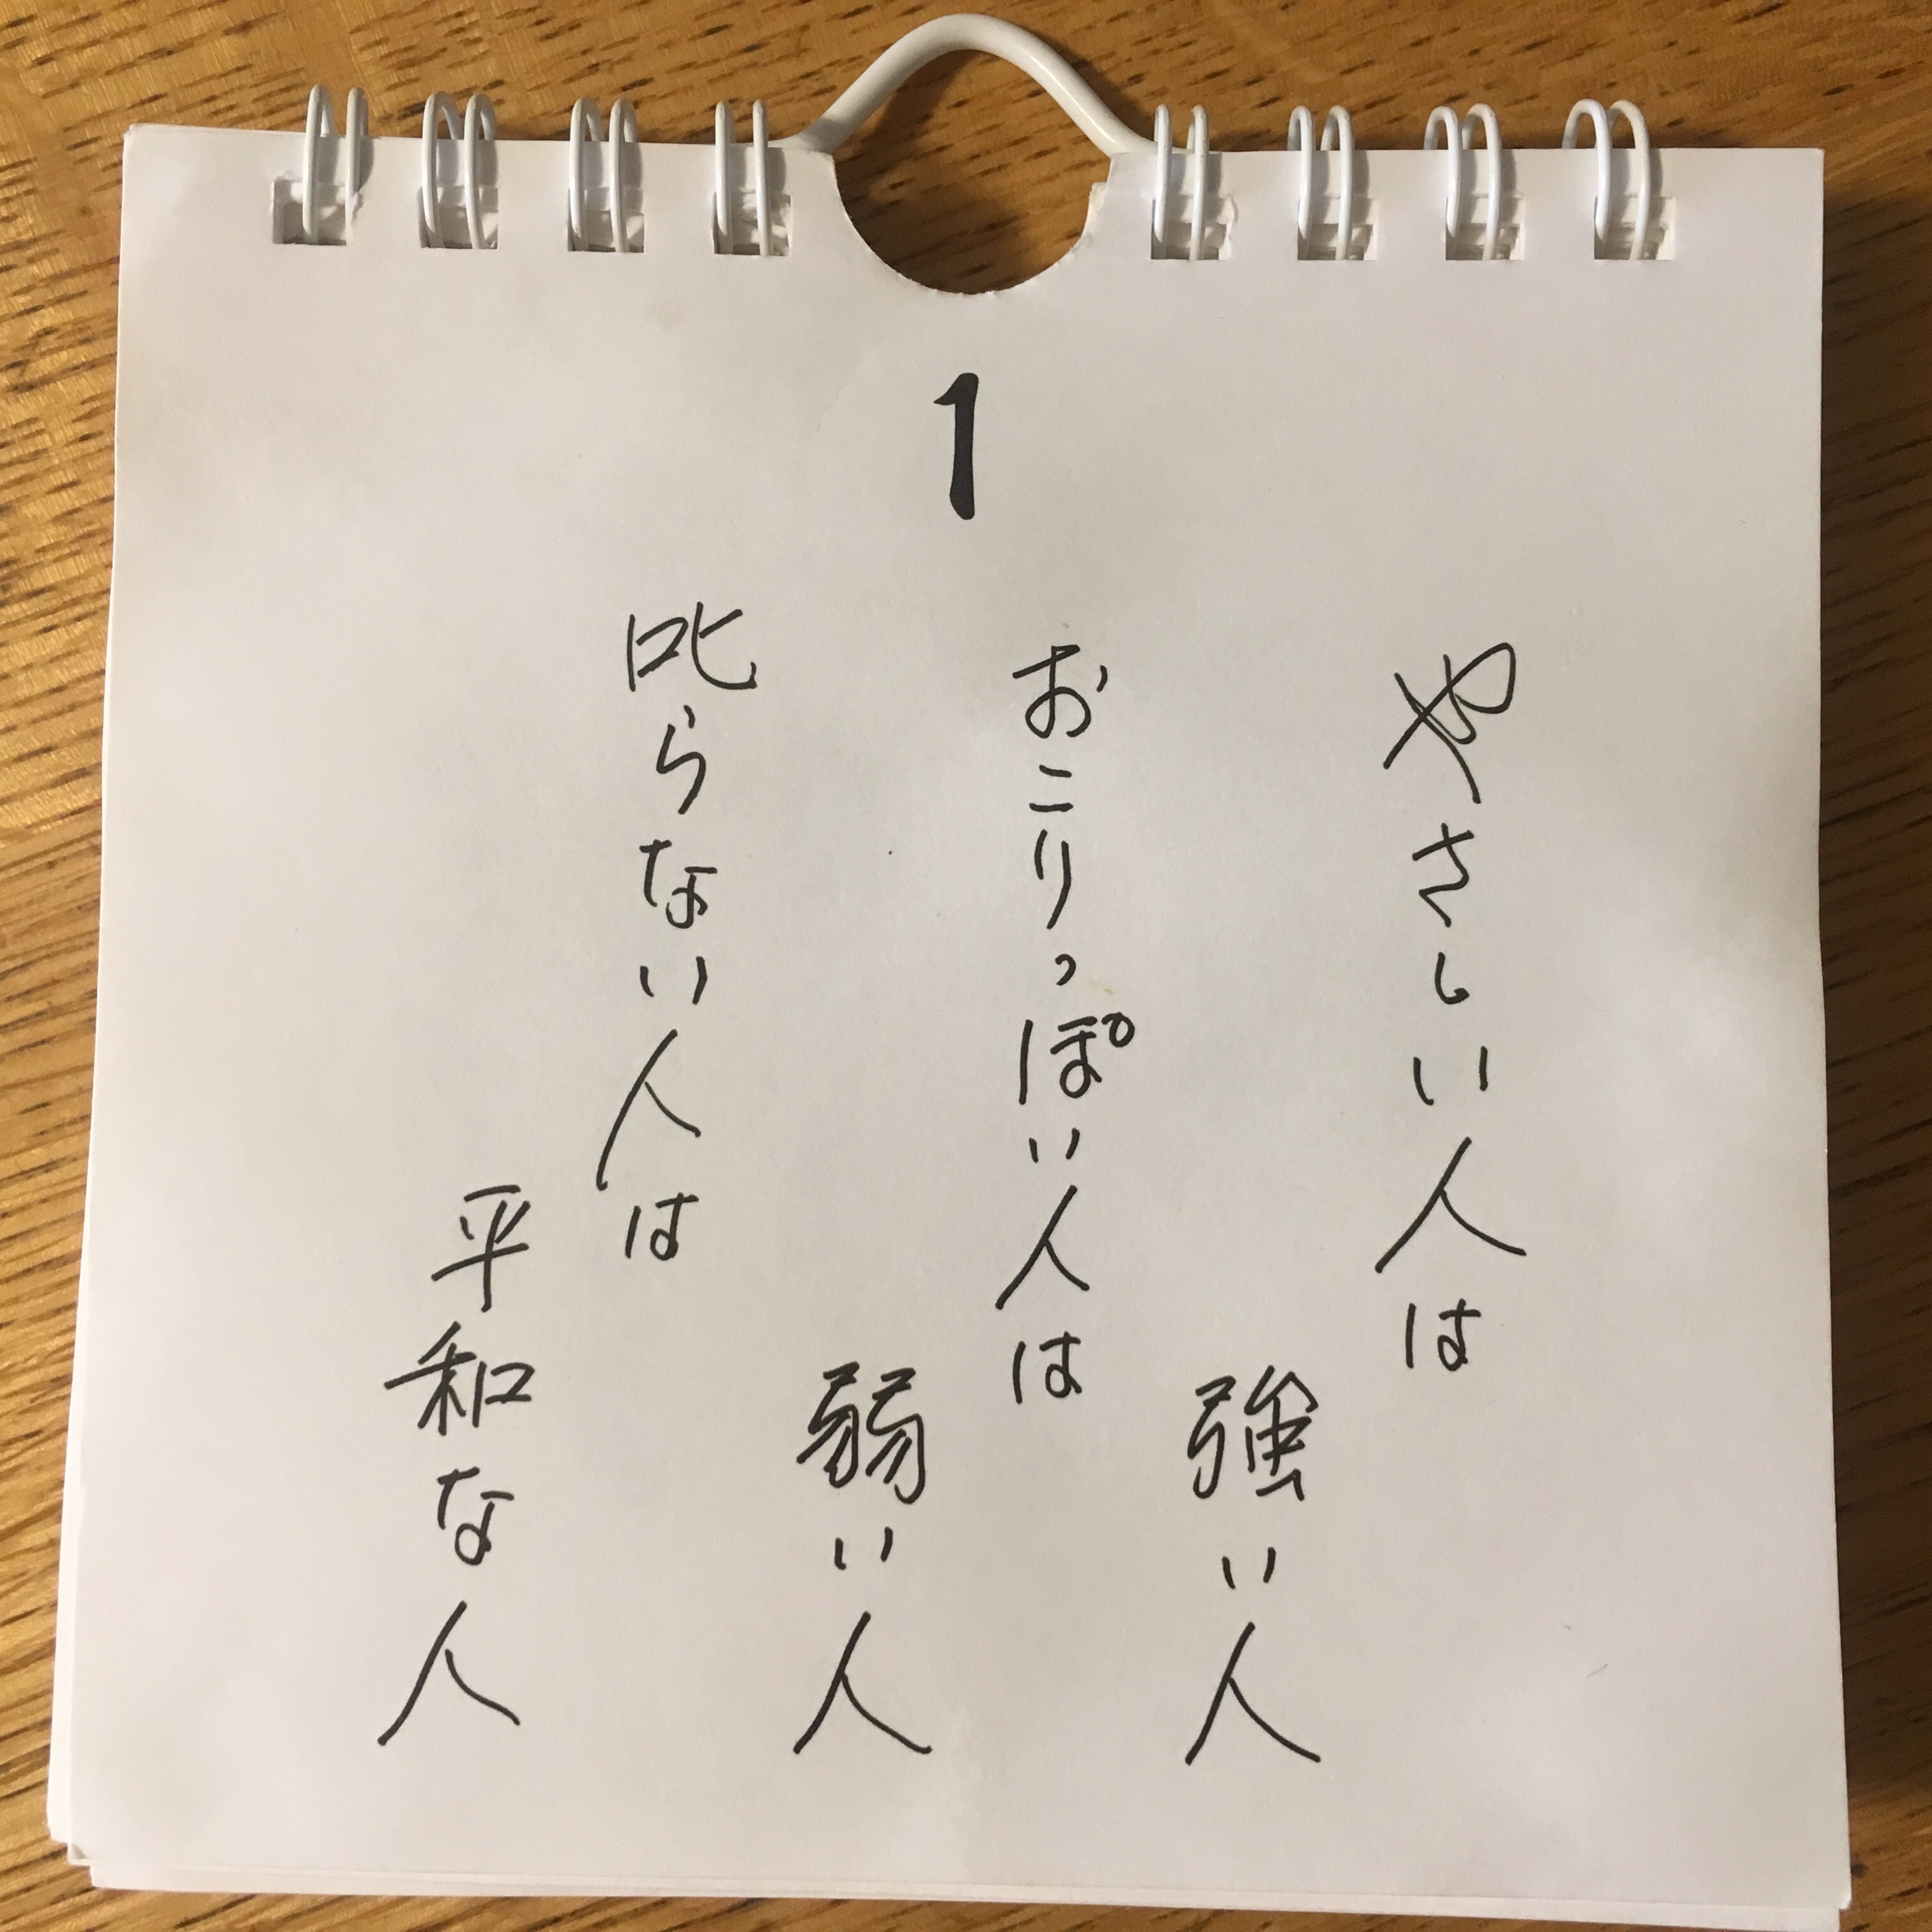 1
やさしい人は
強い人
おこりっぽい人は
弱い人
叱らない人は
平和な人